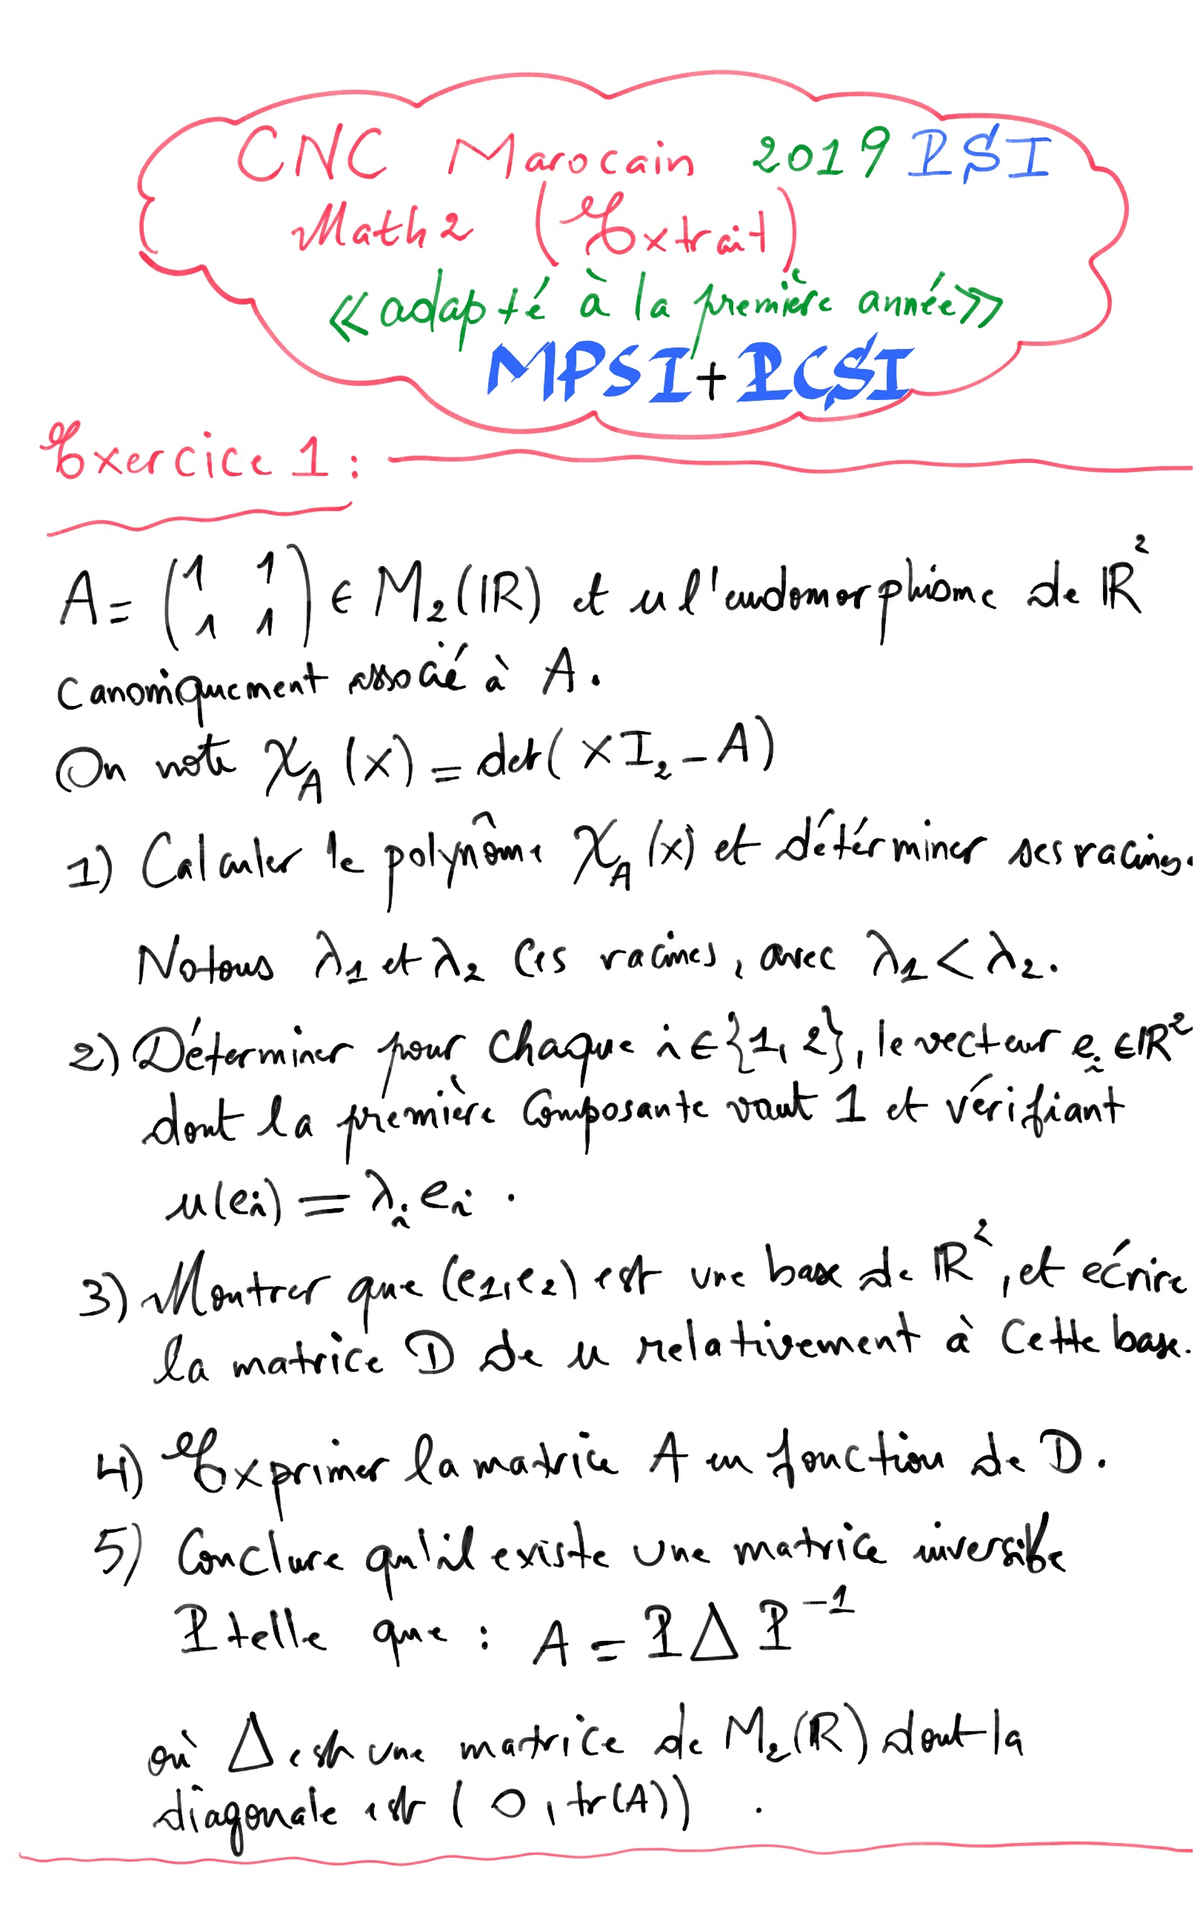 CNC Marocain 2019 PSI
Math2 (Extrait)
«adapté à la première année»
MPSI+PCSI
Exercice 1 :
A = (1 1
1 1) ∈ M₂(IR) et u l'endomorphisme de IR²
canoniquement associé à A.
On note χ_A (x) = det( xI₂ - A)
1) Calculer le polynôme χ_A (x) et détérminer ses racines.
Notons λ1 et λ2 ces racines, avec λ1 < λ2.
2) Déterminer pour chaque i ∈ {1, 2}, le vecteur e_i ∈ IR²
dont la première composante vaut 1 et vérifiant
u(ei) = λ_i e_i .
3) Montrer que (e1, e2) est une base de IR², et écrire
la matrice D de u relativement à cette base.
4) Exprimer la matrice A en fonction de D.
5) Conclure qu'il existe une matrice inversible
P telle que : A = P Δ P⁻¹
où Δ est une matrice de M₂(R) dont la
diagonale est ( 0 , tr(A)) .